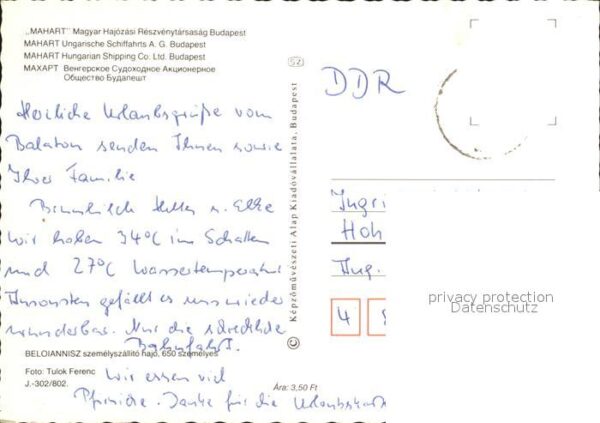 „MAHART" Magyar Hajózási Részvénytársaság Budapest
MAHART Ungarische Schiffahrts A. G. Budapest
MAHART Hungarian Shipping Co. Ltd. Budapest
МАХАРТ Венгерское Судоходное Акционерное
Общество Будапешт
SZ
DDR
Herzliche Urlaubsgrüße vom
Balaton senden Ihnen sowie
Ihrer Familie
u. Elke
Wir haben 34°C im Schatten
und 27°C Wassertemperatur
Ansonsten gefällt es uns wieder
wunderbar. Nur die schreckliche
Bahnfahrt.
BELOIANNISZ személyszállító hajó, 650 személyes
Foto: Tulok Ferenc
J.-302/802.
Wir essen viel
Pfirsiche. Danke für die Urlaubskarte
Ára: 3,50 Ft
© Képzőművészeti Alap Kiadóvállalata, Budapest
Ingri
Hoh
4
privacy protection
Datenschutz